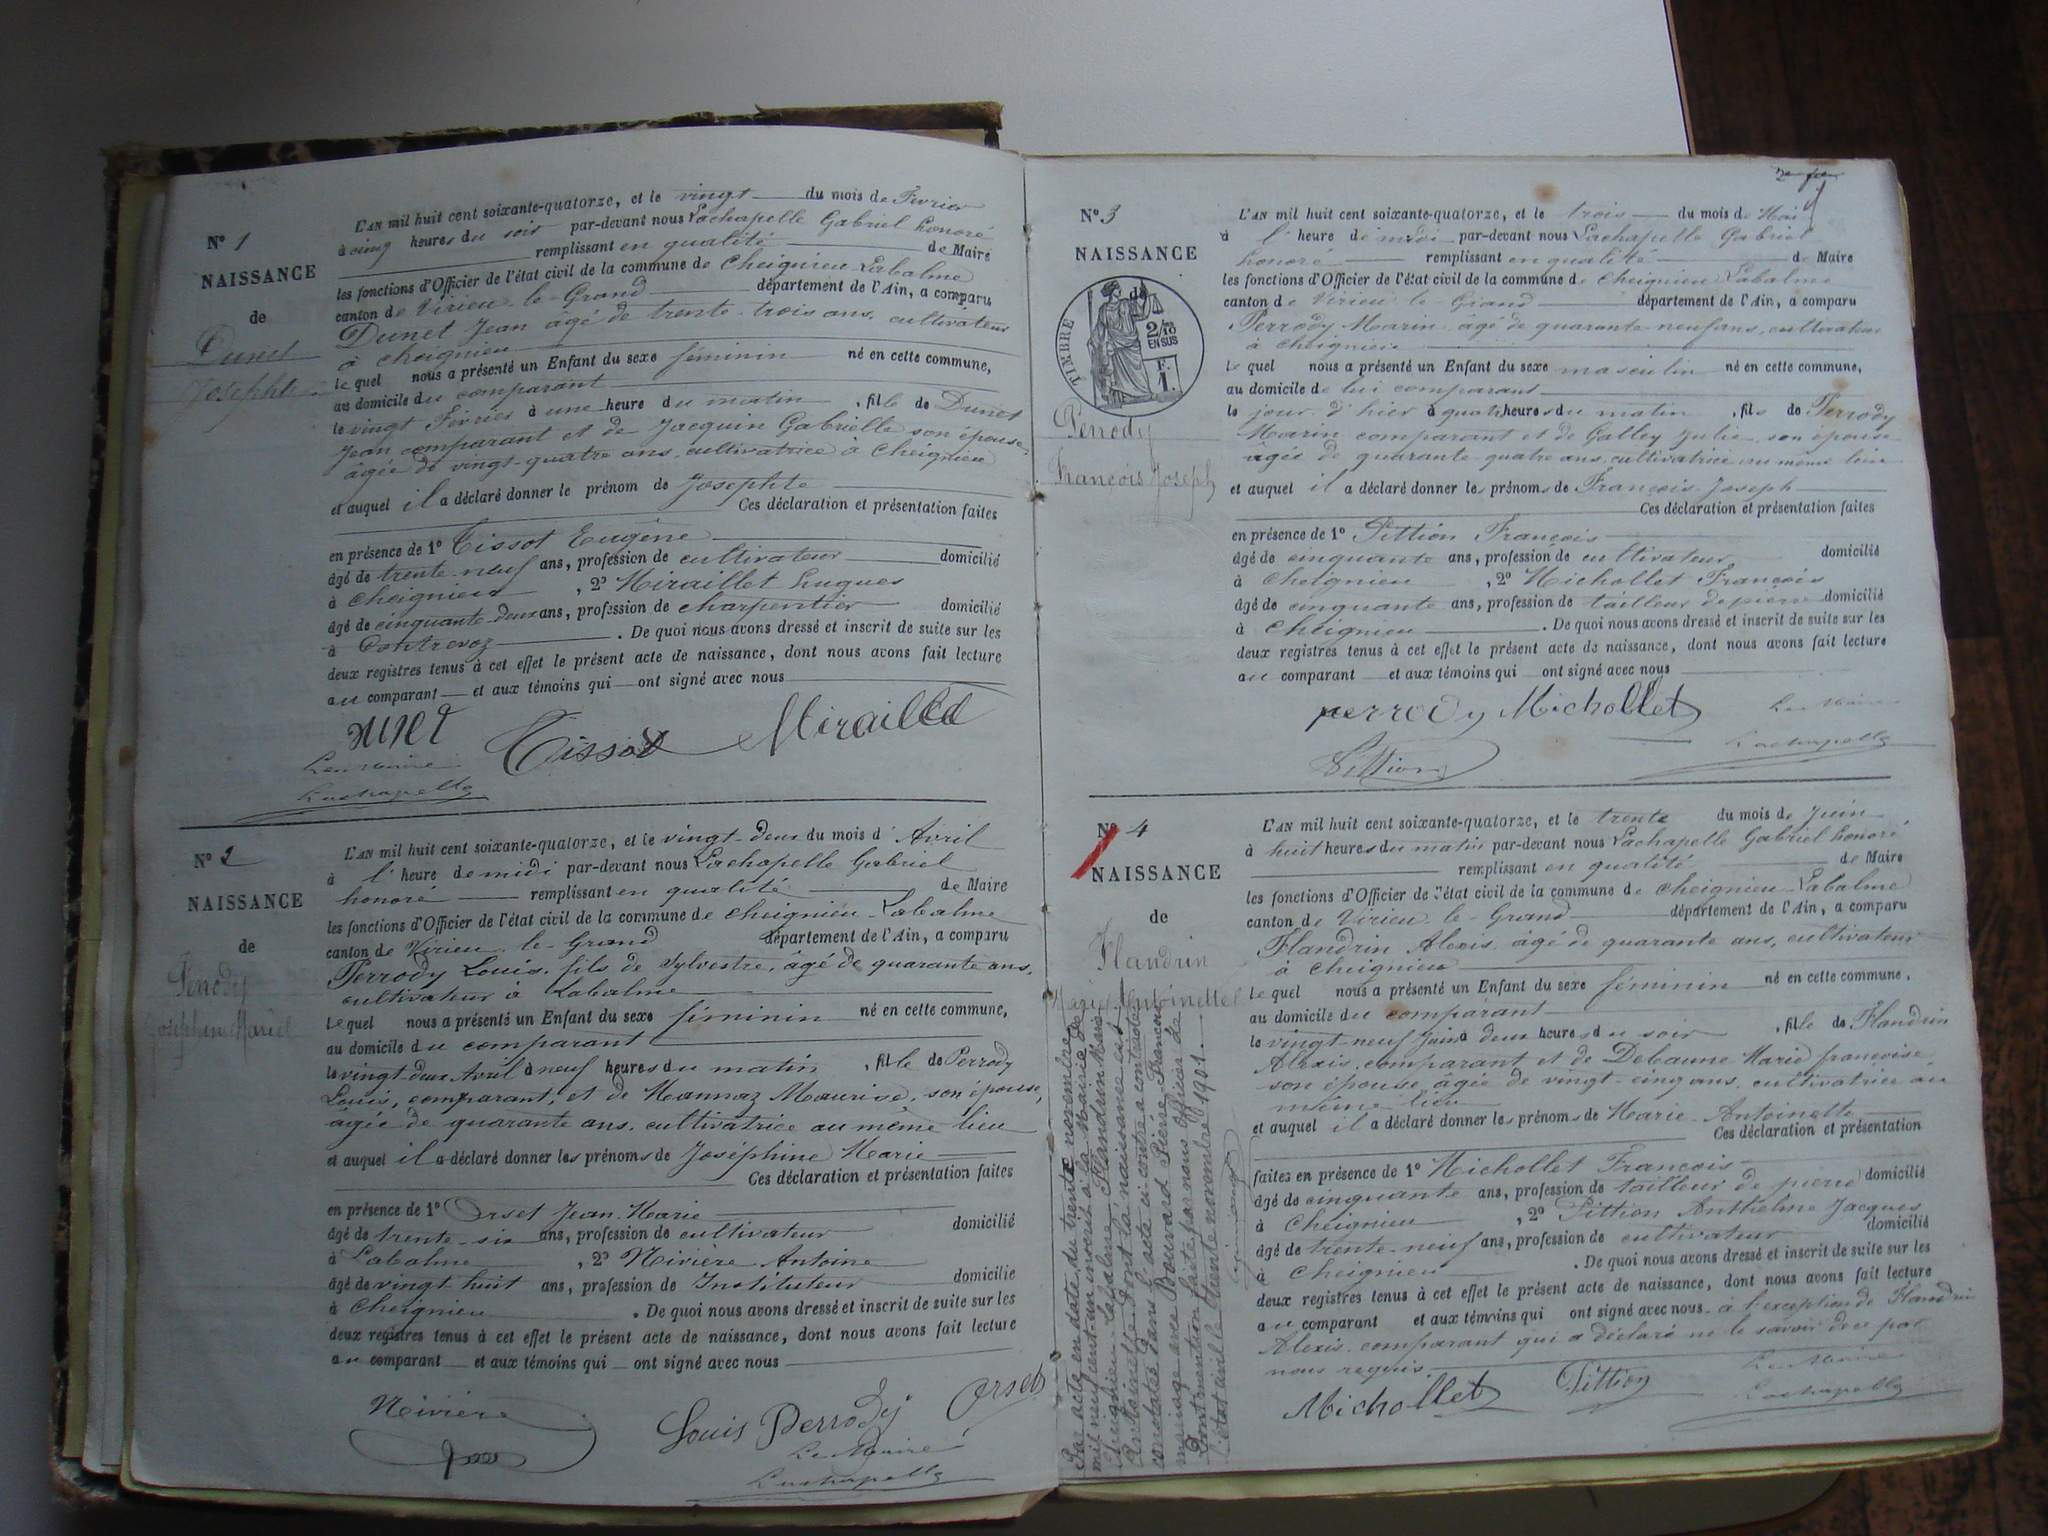 Nº 1
NAISSANCE
de
Dunet
Josephte
L'AN mil huit cent soixante-quatorze, et le vingt du mois de Février
à cinq heures du soir par-devant nous Lachapelle Gabriel honoré
remplissant en qualité de Maire
les fonctions d'Officier de l'état civil de la commune de Cheignieu-Labalme
canton de Virieu-le-Grand département de l'Ain, a comparu
Dunet Jean âgé de trente-trois ans, cultivateur
à Cheignieu
le quel nous a présenté un Enfant du sexe féminin né en cette commune,
au domicile du comparant
le vingt Février à une heure du matin, fille de Dunet
Jean comparant et de Jacquin Gabrielle son épouse
âgée de vingt-quatre ans, cultivatrice à Cheignieu
et auquel il a déclaré donner le prénom de Josephte
Ces déclaration et présentation faites
en présence de 1º Tissot Eugène
âgé de trente-neuf ans, profession de cultivateur domicilié
à Cheignieu, 2º Miraillet hugues
âgé de cinquante-deux ans, profession de charpentier domicilié
à Contrevoz. De quoi nous avons dressé et inscrit de suite sur les
deux registres tenus à cet effet le présent acte de naissance, dont nous avons fait lecture
au comparant et aux témoins qui ont signé avec nous
Tissot Miraillet
Le Maire
Lachapelle
Nº 2
NAISSANCE
de
Perrody
Josephine Marie
L'AN mil huit cent soixante-quatorze, et le vingt-deux du mois d'Avril
à l'heure de midi par-devant nous Lachapelle Gabriel
honoré remplissant en qualité de Maire
les fonctions d'Officier de l'état civil de la commune de Cheignieu-Labalme
canton de Virieu-le-Grand département de l'Ain, a comparu
Perrody Louis, fils de Sylvestre, âgé de quarante ans,
cultivateur à Labalme
le quel nous a présenté un Enfant du sexe féminin né en cette commune,
au domicile du comparant
le vingt-deux Avril à neuf heures du matin, fille de Perrody
Louis, comparant, et de Mannaz Maurise, son épouse,
âgée de quarante ans, cultivatrice au même lieu
et auquel il a déclaré donner les prénoms de Joséphine Marie
Ces déclaration et présentation faites
en présence de 1º Orset Jean-Marie
âgé de trente-six ans, profession de cultivateur domicilié
à Labalme, 2º Nivière Antoine
âgé de vingt huit ans, profession de Instituteur domicilié
à Cheignieu. De quoi nous avons dressé et inscrit de suite sur les
deux registres tenus à cet effet le présent acte de naissance, dont nous avons fait lecture
au comparant et aux témoins qui ont signé avec nous
Nivière Louis Perrody Orset
Le Maire
Lachapelle
Nº 3
NAISSANCE
de
TIMBRE
2/10
EN SUS
F.
1.
Perrody
François Joseph
L'AN mil huit cent soixante-quatorze, et le trois du mois de Mai
à l'heure de midi par-devant nous Lachapelle Gabriel
honoré remplissant en qualité de Maire
les fonctions d'Officier de l'état civil de la commune de Cheignieu Labalme
canton de Virieu-le-Grand département de l'Ain, a comparu
Perrody Marin âgé de quarante-neuf ans, cultivateur
à Cheignieu
le quel nous a présenté un Enfant du sexe masculin né en cette commune,
au domicile de lui comparant
le jour d'hier à quatre heures du matin, fils de Perrody
Marin comparant et de Galley Julie son épouse
âgée de quarante-quatre ans, cultivatrice au même lieu
et auquel il a déclaré donner les prénoms de François-Joseph
Ces déclaration et présentation faites
en présence de 1º Pittion François
âgé de cinquante ans, profession de cultivateur domicilié
à Cheignieu, 2º Michollet François
âgé de cinquante ans, profession de tailleur de pierre domicilié
à Cheignieu. De quoi nous avons dressé et inscrit de suite sur les
deux registres tenus à cet effet le présent acte de naissance, dont nous avons fait lecture
au comparant et aux témoins qui ont signé avec nous
perrody Michollet Le Maire
Pittion Lachapelle
Nº 4
NAISSANCE
de
Flandrin
Marie Antoinette
Par acte en date du trente novembre
mil neuf cent un inscrit à la Mairie de
Cheignieu-Labalme, Flandrin Marie
Antoinette dont la naissance est
constatée dans l'acte ci-contre a contracté
mariage avec Bouvard Pierre François
Mention faite par nous Officier de
l'état civil le trente novembre 1901.
L'AN mil huit cent soixante-quatorze, et le trente du mois de Juin
à huit heures du matin par-devant nous Lachapelle Gabriel honoré
remplissant en qualité de Maire
les fonctions d'Officier de l'état civil de la commune de Cheignieu-Labalme
canton de Virieu-le-Grand département de l'Ain, a comparu
Flandrin Alexis âgé de quarante ans, cultivateur
à Cheignieu
le quel nous a présenté un Enfant du sexe féminin né en cette commune.
au domicile du comparant
le vingt-neuf Juin à deux heures du soir, fille de Flandrin
Alexis, comparant et de Debaune Marie françoise
son épouse âgée de vingt-cinq ans, cultivatrice au
même lieu
et auquel il a déclaré donner les prénoms de Marie-Antoinette
Ces déclaration et présentation
faites en présence de 1º Michollet François
âgé de cinquante ans, profession de tailleur de pierre domicilié
à Cheignieu, 2º Pittion Anthelme Jacques
âgé de trente-neuf ans, profession de cultivateur domicilié
à Cheignieu. De quoi nous avons dressé et inscrit de suite sur les
deux registres tenus à cet effet le présent acte de naissance, dont nous avons fait lecture
au comparant et aux témoins qui ont signé avec nous à l'exception de Flandrin
Alexis comparant qui a déclaré ne le savoir de ce par
nous requis.
Michollet Pittion Le Maire
Lachapelle